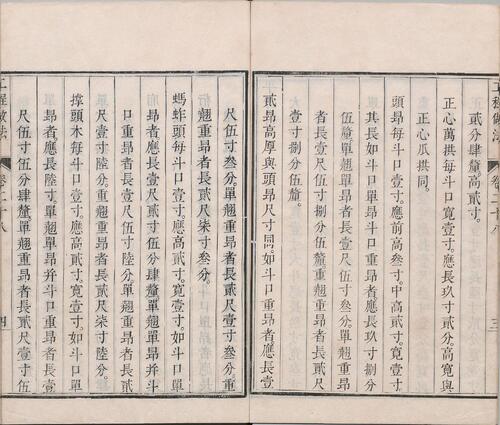 工程做法 卷二十八 三
正貳分肆釐。高貳寸。
正心萬拱。每斗口寬壹寸。應長玖寸貳分。高寬與
正心瓜拱同。
頭昂。每斗口壹寸。應前高叁寸。中高貳寸。寬壹寸。
其長如斗口單昂。并斗口重昂者。應長玖寸捌分
伍釐。單翹單昂者。長壹尺伍寸叁分。單翹重昂
者。長壹尺伍寸捌分伍釐。重翹重昂者。長貳尺
壹寸捌分伍釐。
貳昂。高厚與頭昂尺寸同。如斗口重昂者。應長壹
尺伍寸叁分。單翹重昂者。長貳尺壹寸叁分。重
翹重昂者。長貳尺柒寸叁分。
螞蚱頭。每斗口壹寸。應高貳寸。寬壹寸。如斗口單
昂者。應長壹尺貳寸伍分肆釐。單翹單昂。并斗
口重昂者。長壹尺伍寸陸分。單翹重昂者。長貳
尺壹寸陸分。重翹重昂者。長貳尺柒寸陸分。
撐頭木。每斗口壹寸。應高貳寸。寬壹寸。如斗口單
昂者。應長陸寸。單翹單昂。并斗口重昂者。長壹
尺伍寸伍分肆釐。單翹重昂者。長貳尺壹寸伍
工程做法 卷二十八 四